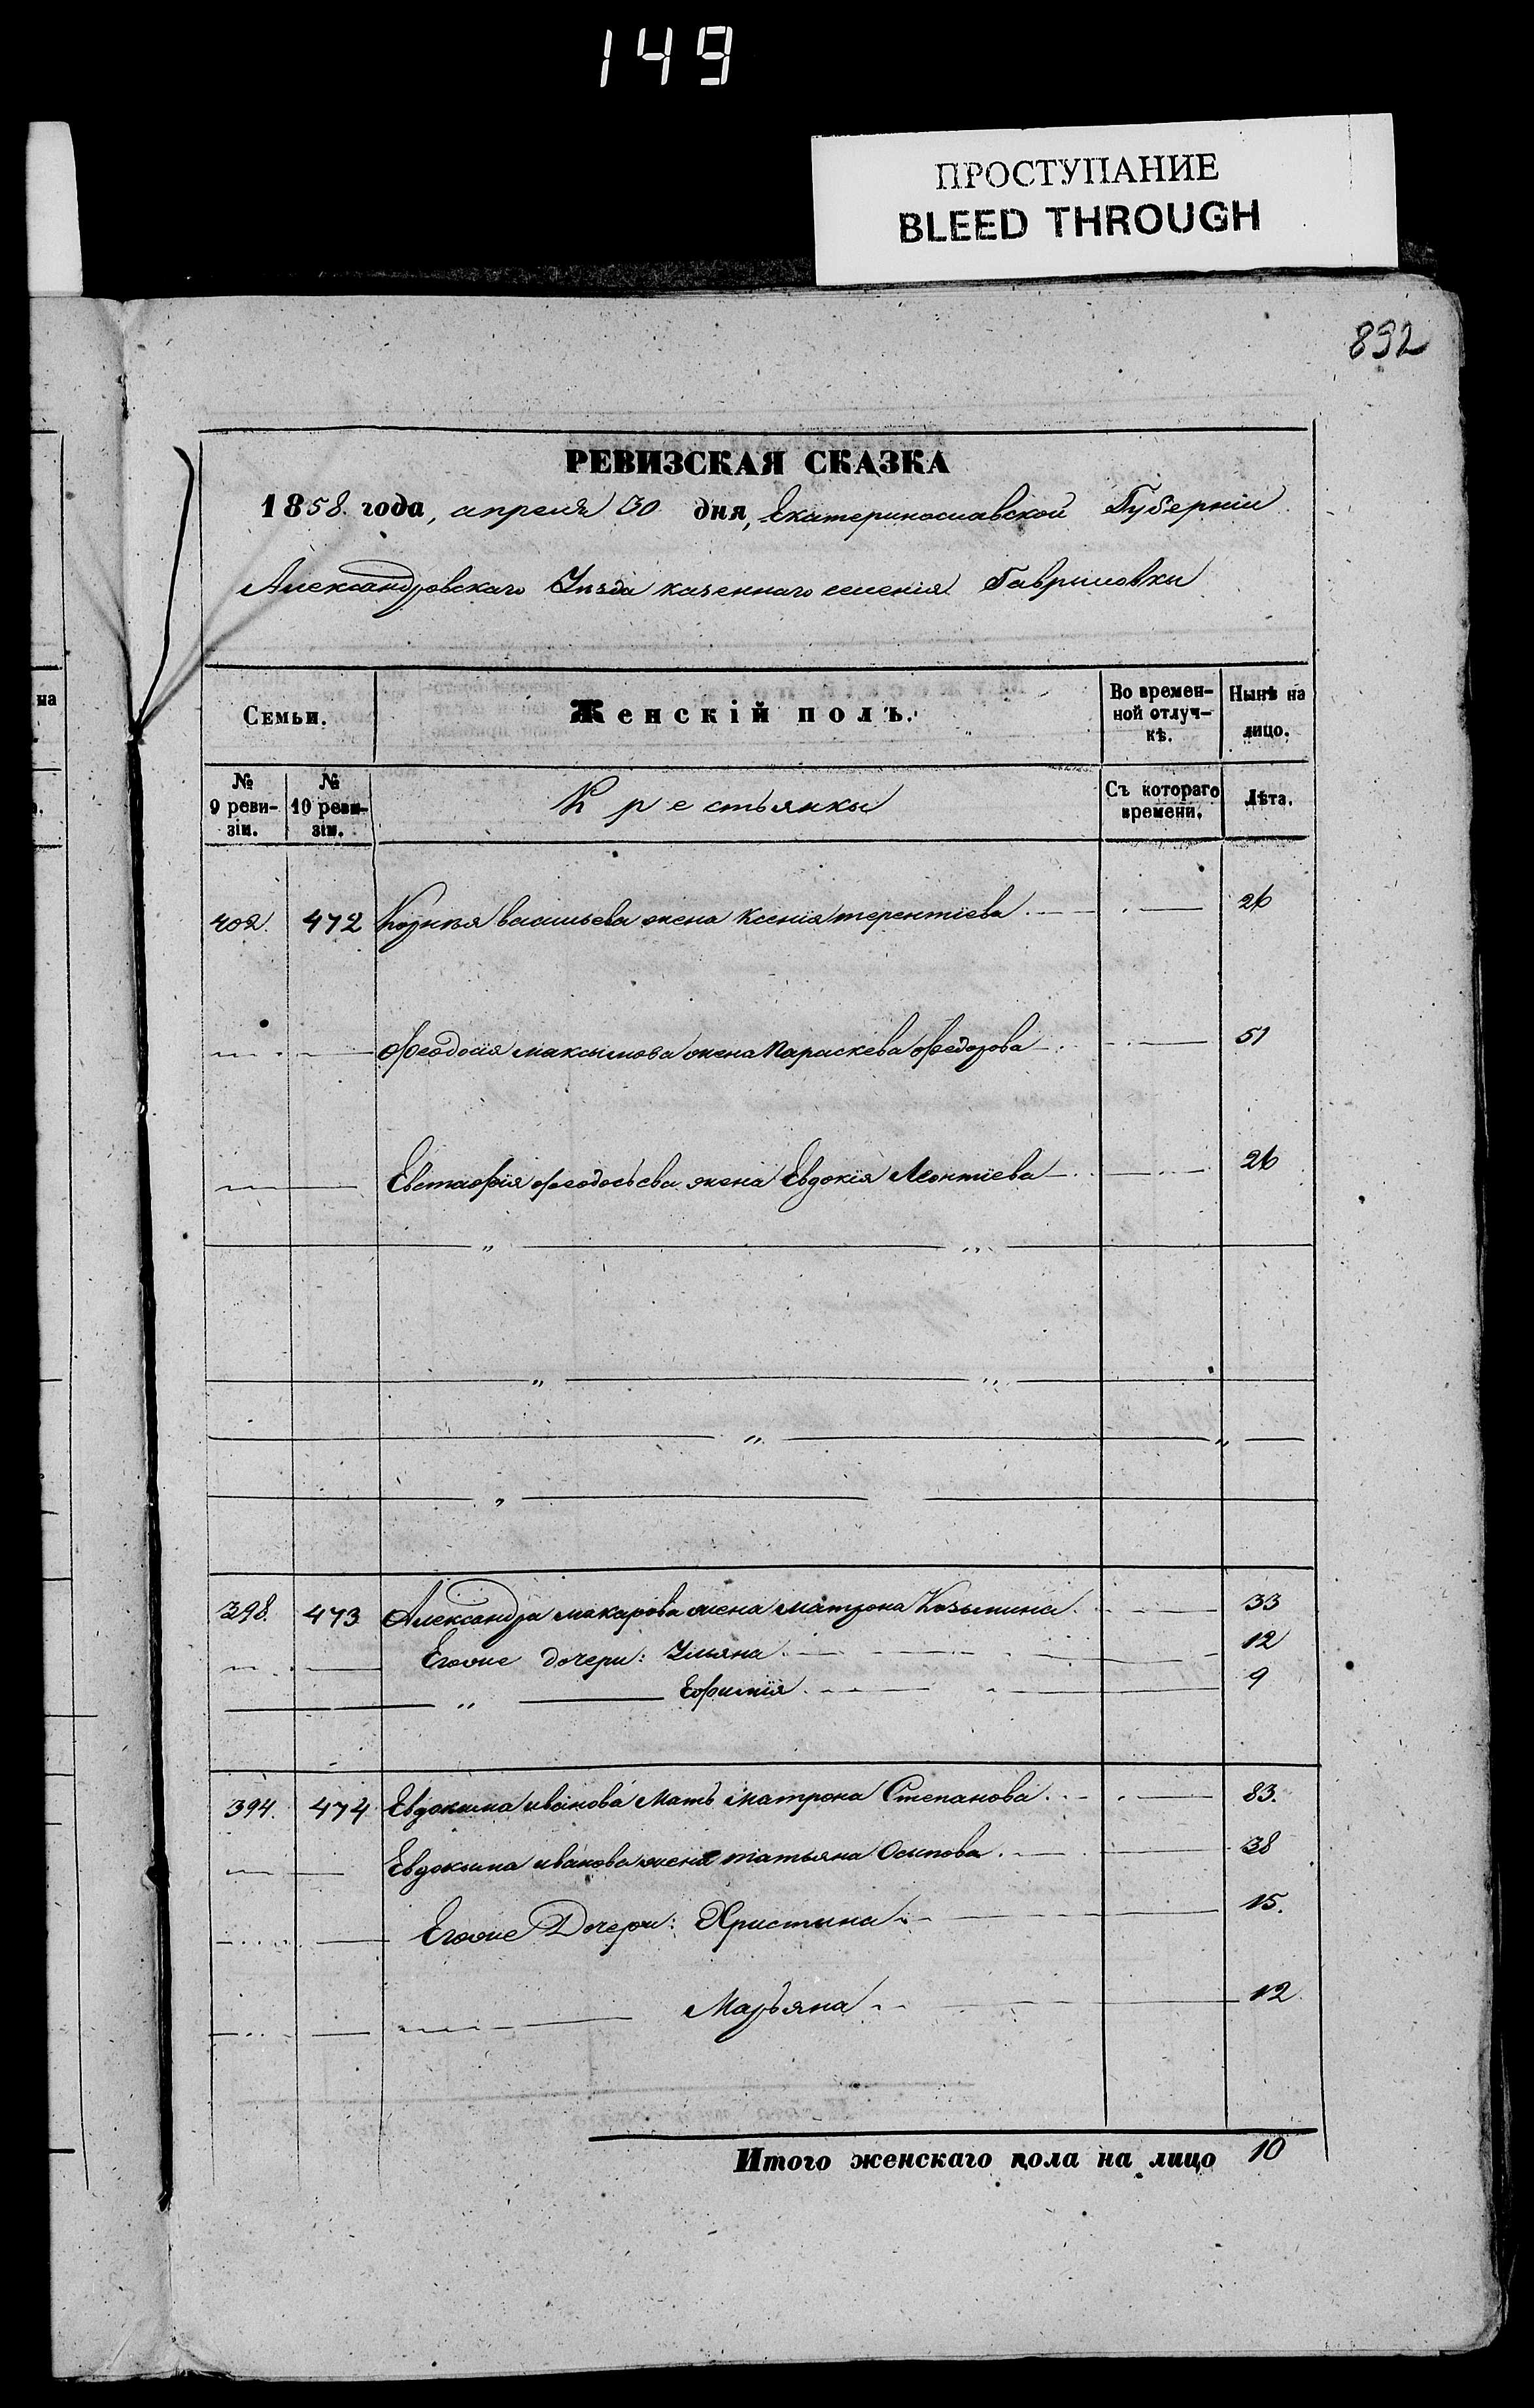 149
ПРОСТУПАНИЕ
BLEED THROUGH
892
РЕВИЗСКАЯ СКАЗКА
1858. года, апреля 30 дня, Екатеринославской Губерніи
Александровскаго Уезда казеннаго селенія Гавриловки
Семьи. Женскій полъ. Во временной отлуч-кѣ. Нынѣ на лицо.
№ 9 реви-зіи. № 10 реви-зіи. Крестьянки Съ котораго времени. Лѣта.
402. 472 васильева жена Ксенія терентіева 26
Феодосія максимова жена Параскева Федорова 51
Евстафія феодосъева жена Евдокія Леонтіева 26
398. 473 Александра макарова жена матрона Козьмина 33
Егоже дочери: Ульяна 12
Ефимія 9
394. 474 Евдокима иванова Мать матрона Степанова 83.
Евдокима иванова жена татьяна Осипова 38
Егоже Дочери: Христина 15.
Маръяна 12
Итого женскаго пола на лицо 10
на